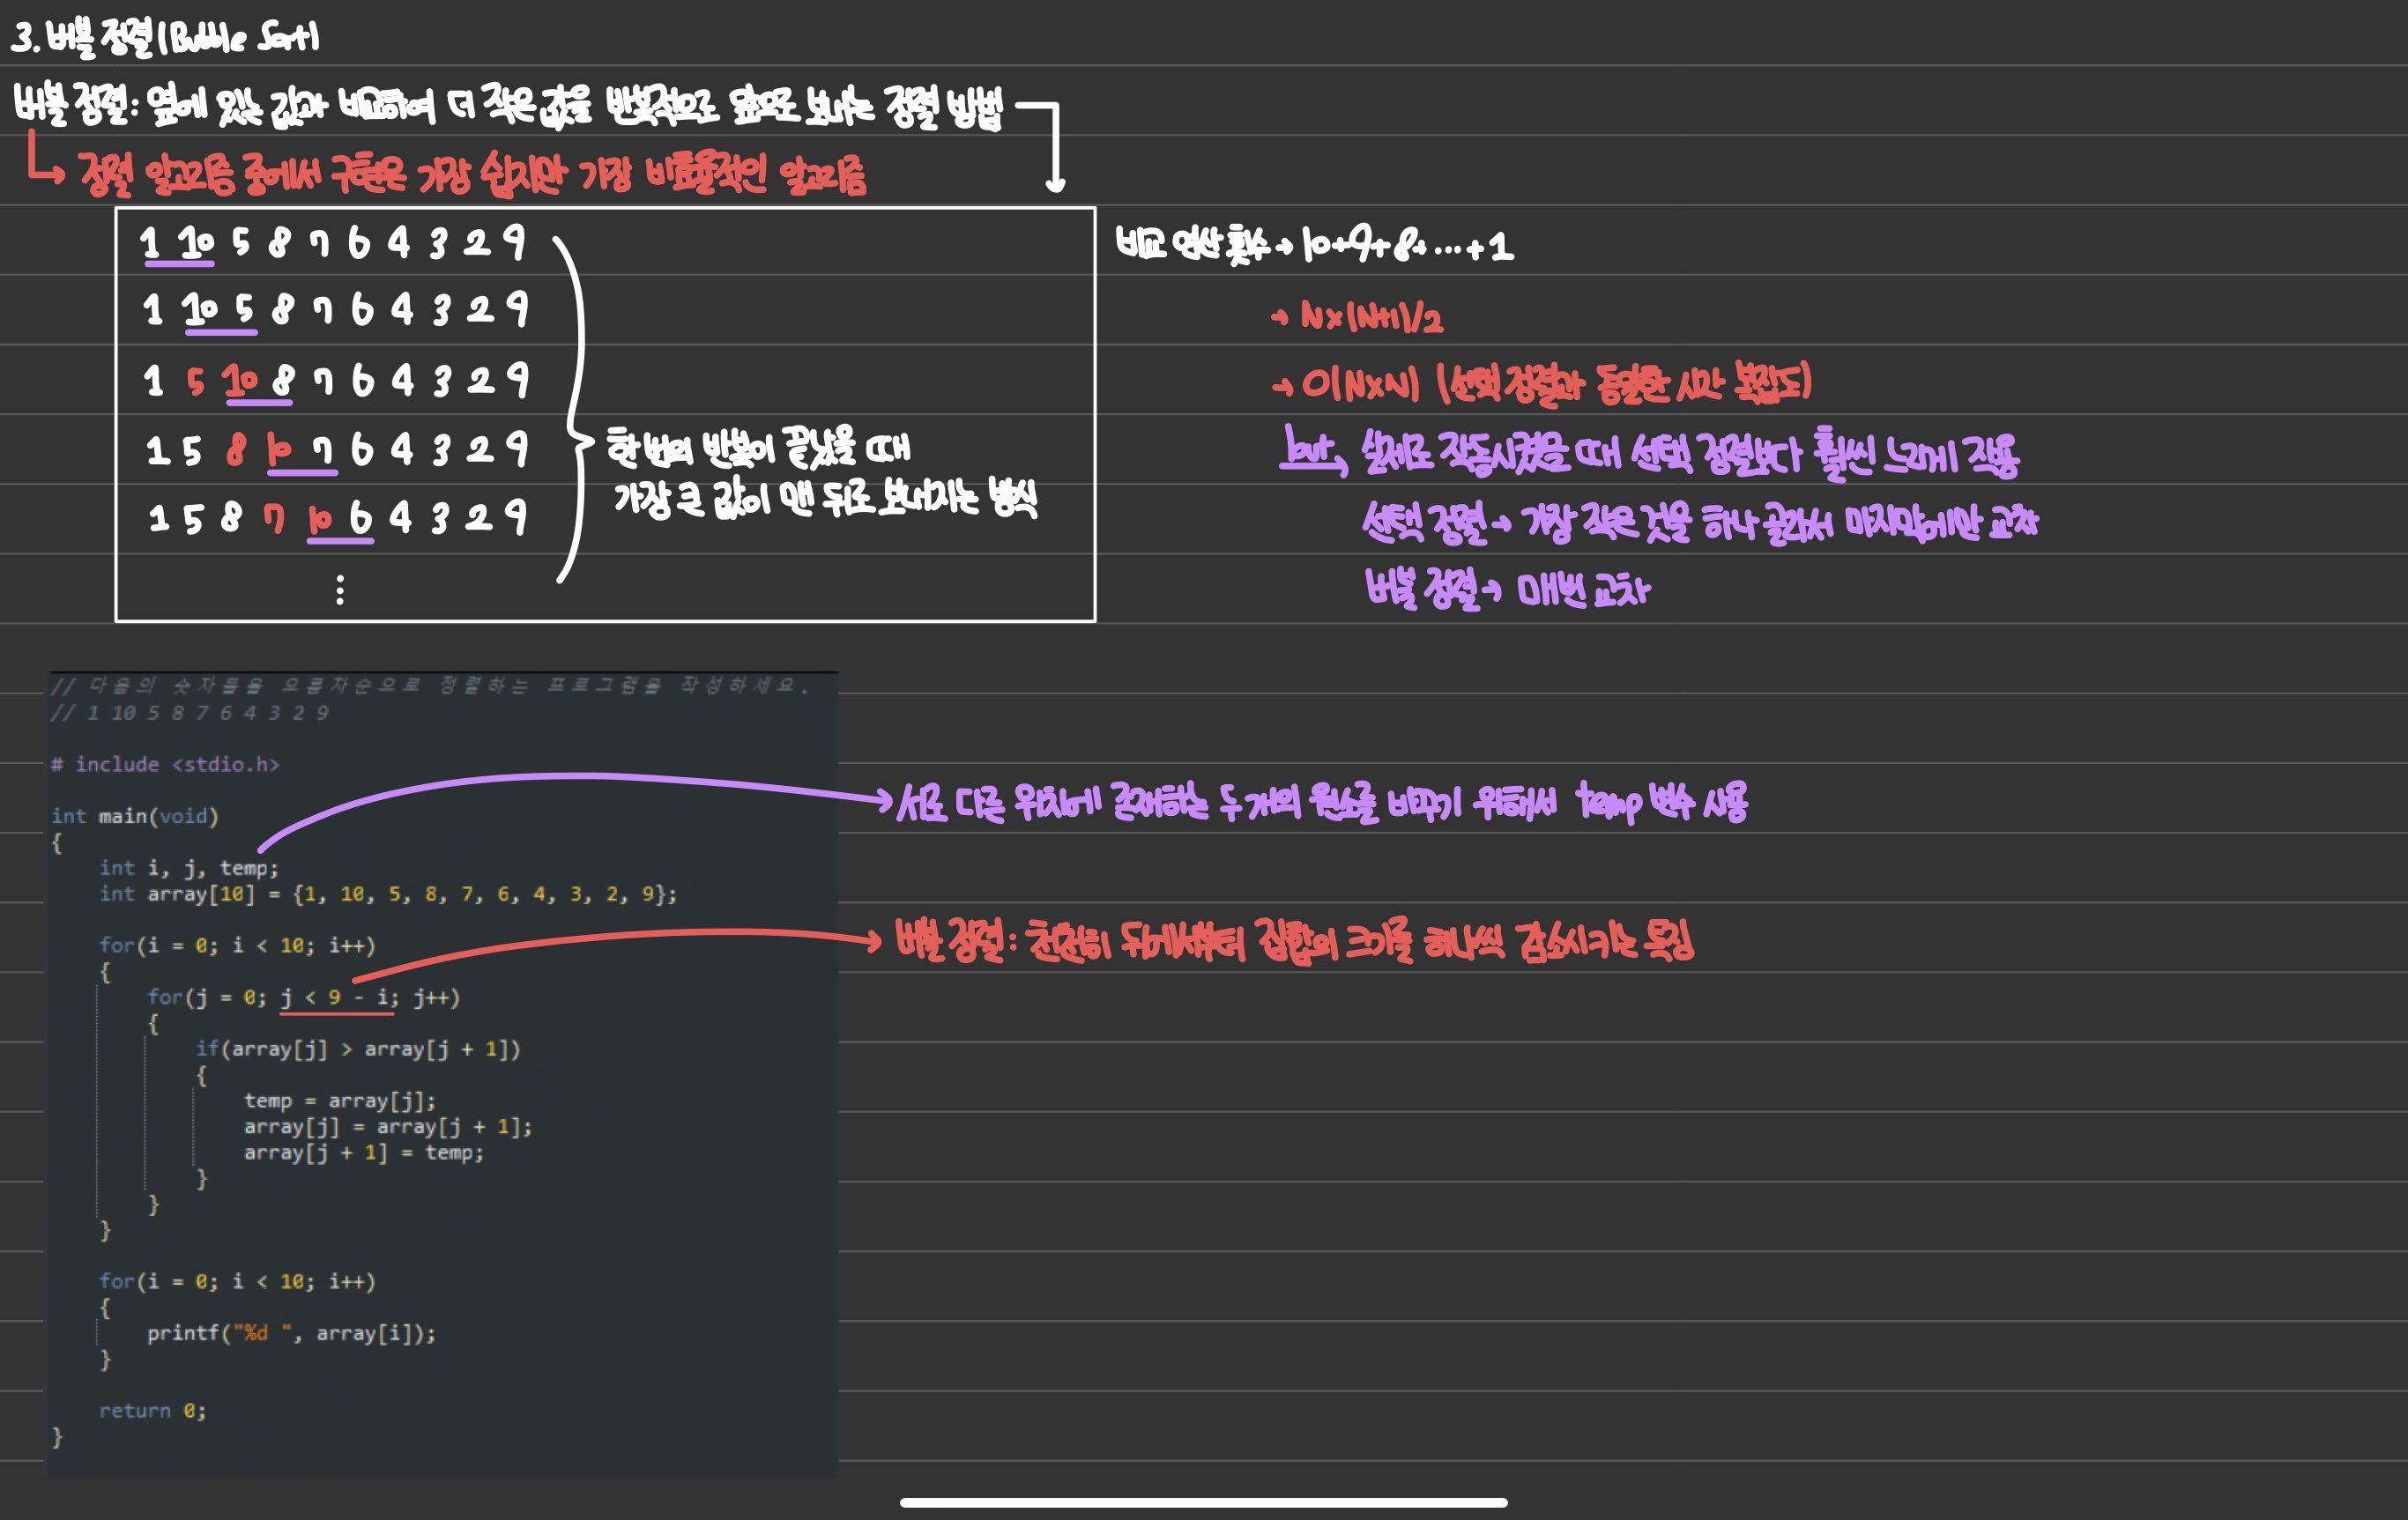 3. 버블 정렬(Bubble Sort)
버블 정렬: 옆에 있는 값과 비교해서 더 작은 값을 반복적으로 앞으로 보내는 정렬 방법
정렬 알고리즘 중에서 구현은 가장 쉽지만 가장 비효율적인 알고리즘
1 10 5 8 7 6 4 3 2 9
1 10 5 8 7 6 4 3 2 9
1 5 10 8 7 6 4 3 2 9
1 5 8 10 7 6 4 3 2 9
1 5 8 7 10 6 4 3 2 9
⋮
한 번의 반복이 끝났을 때
가장 큰 값이 맨 뒤로 보내지는 방식
비교 연산 횟수 → 10+9+8....+1
→ N×(N+1)/2
→ O(N×N) (선택 정렬과 동일한 시간 복잡도)
but 실제로 작동시켰을 때 선택 정렬보다 훨씬 느리게 작용
선택 정렬 → 가장 작은 것을 하나 골라서 마지막에만 교차
버블 정렬 → 매번 교차
// 다음의 숫자들을 오름차순으로 정렬하는 프로그램을 작성하세요.
// 1 10 5 8 7 6 4 3 2 9
# include <stdio.h>
int main(void)
{
int i, j, temp;
int array[10] = {1, 10, 5, 8, 7, 6, 4, 3, 2, 9};
for(i = 0; i < 10; i++)
{
for(j = 0; j < 9 - i; j++)
{
if(array[j] > array[j + 1])
{
temp = array[j];
array[j] = array[j + 1];
array[j + 1] = temp;
}
}
}
for(i = 0; i < 10; i++)
{
printf("%d ", array[i]);
}
return 0;
}
서로 다른 위치에 존재하는 두 개의 원소를 바꾸기 위해서 temp 변수 사용
버블 정렬: 뒤에서부터 집합의 크기를 하나씩 감소시키는 특징